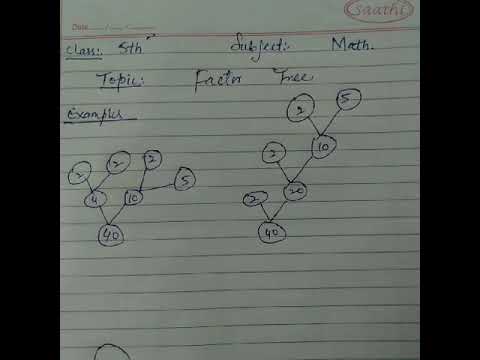 saathi
Date ..../..../........
Class: 5th Subject: Math.
Topic: Factor Tree
Examples
2 5
2 2 2 2 10
5
4 10 2 20
40 40